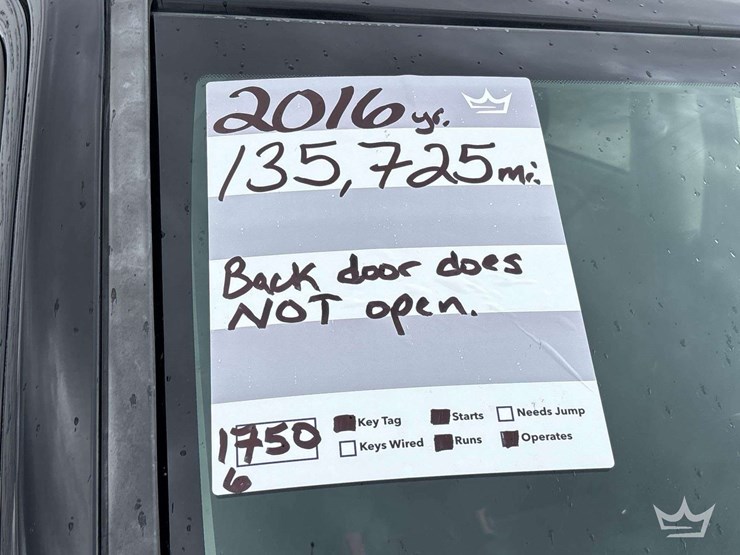 2016 yr.
135,725 mi.
Back door does
NOT open.
17506
Key Tag Starts Needs Jump
Keys Wired Runs Operates